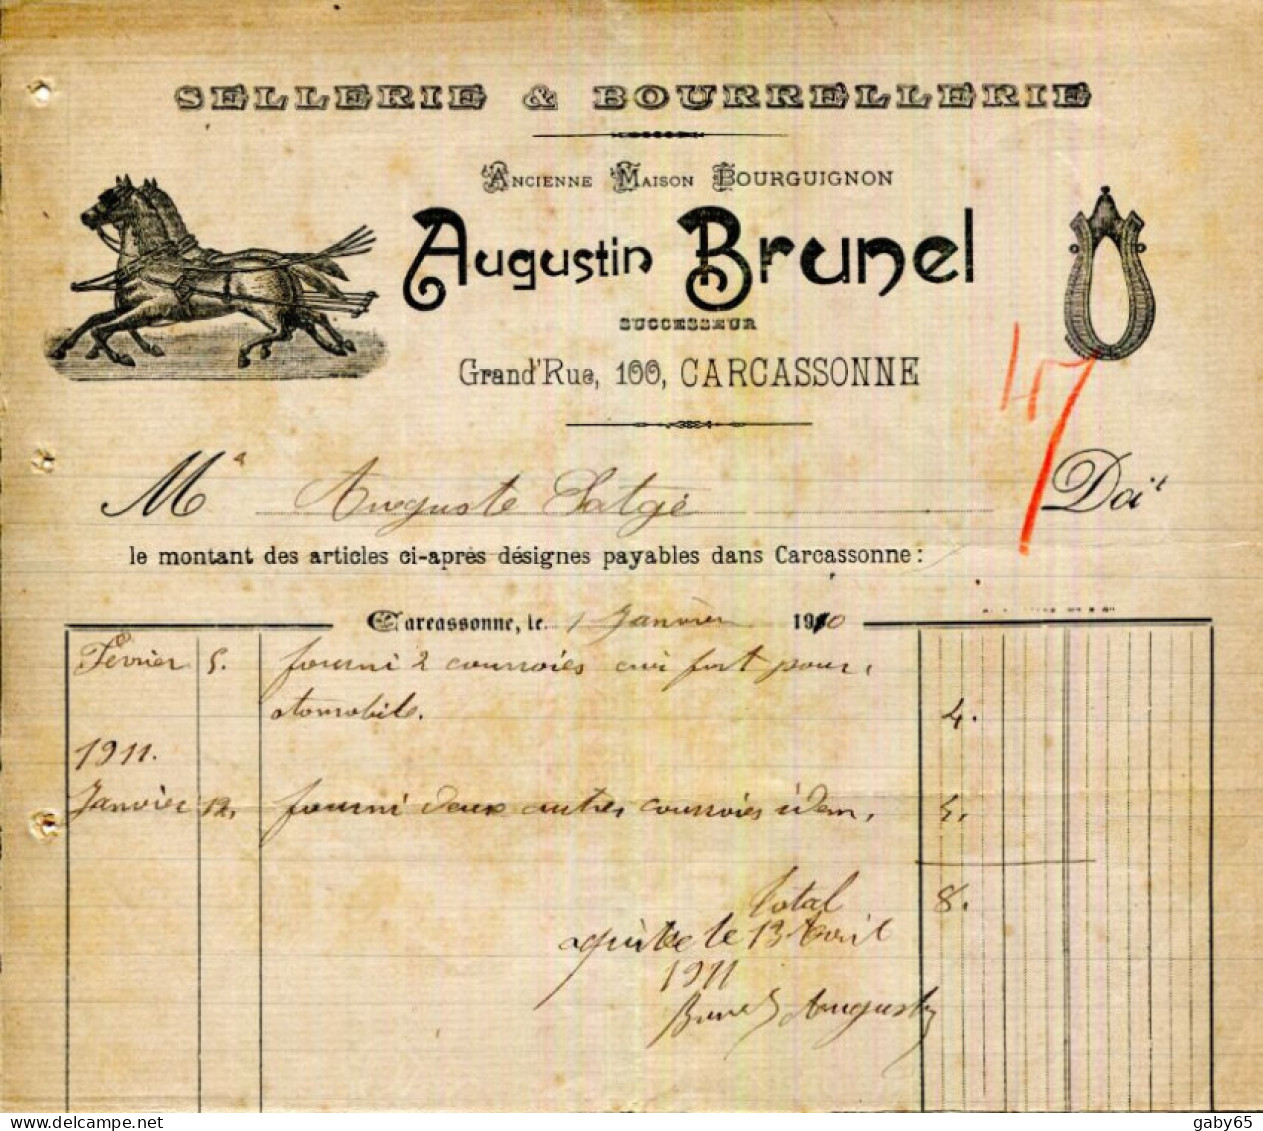 SELLERIE & BOURRELLERIE
ANCIENNE MAISON BOURGUIGNON
Augustin Brunel
SUCCESSEUR
Grand'Rue, 100, CARCASSONNE
47
M Auguste Satgé Doit
le montant des articles ci-après désignes payables dans Carcassonne:
Carcassonne, le 1 Janvier 1910
Février 5. fourni 2 courroies cuir fort pour
otomobile. 4.
1911.
Janvier 12, fourni deux autres courroies idem,
Total 8.
aquitté le 13 Avril
1911
Brunel Augustin
gaby65